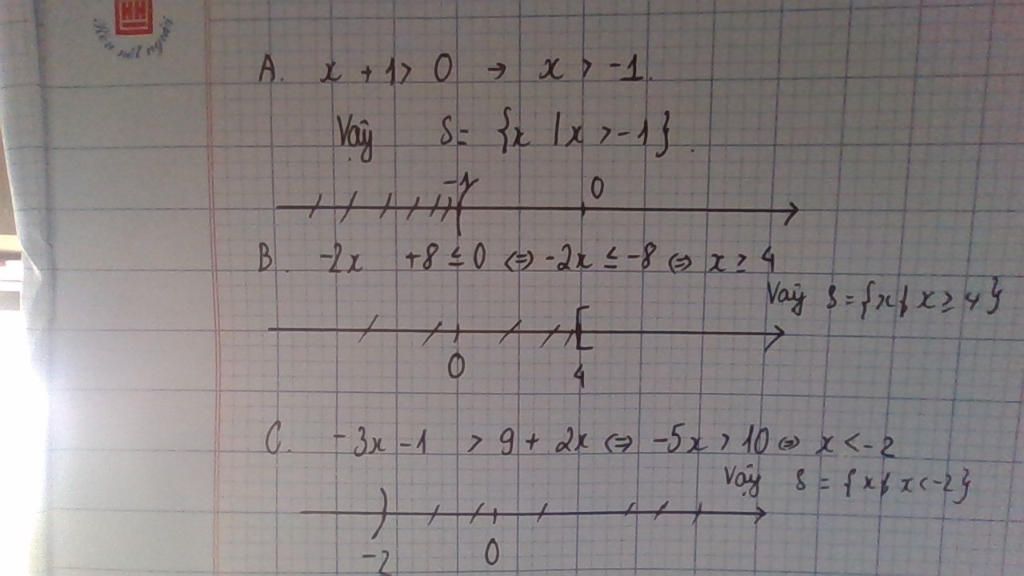 HH
Nét nết người
A. x + 1 > 0 → x > -1.
Vậy S = {x | x > -1}.
-1 0
B. -2x +8 ≤ 0 ⇔ -2x ≤ -8 ⇔ x ≥ 4
Vậy S = {x | x ≥ 4}
0 4
C. -3x - 1 > 9 + 2x ⇔ -5x > 10 ⇔ x < -2
Vậy S = {x | x < -2}
-2 0